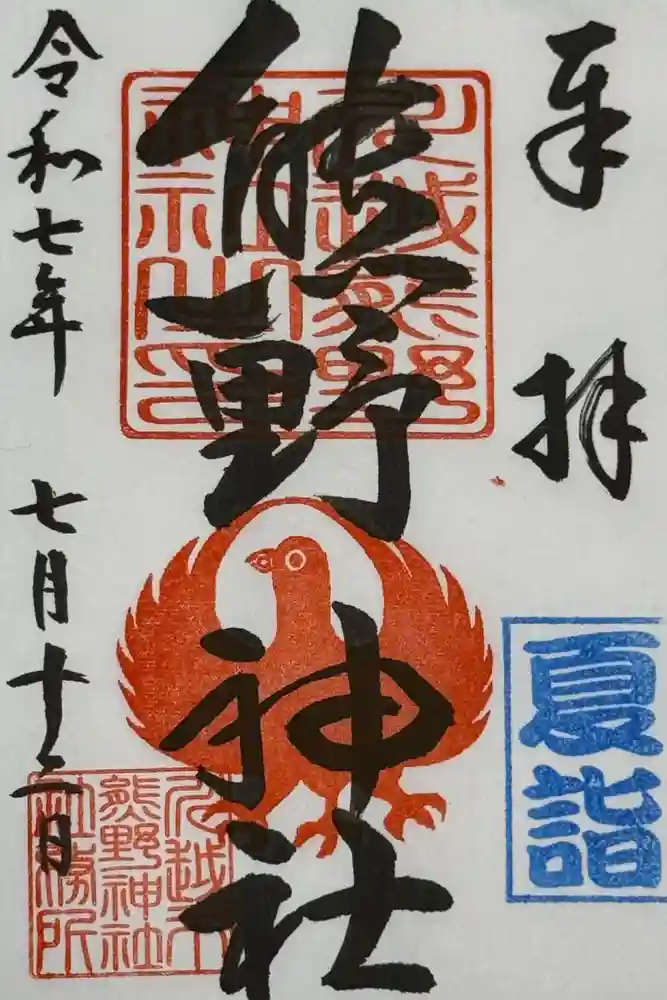 奉拝
夏詣
熊野神社
川越熊野神社之印
川越市
熊野神社
社務所
令和七年
七月十二日